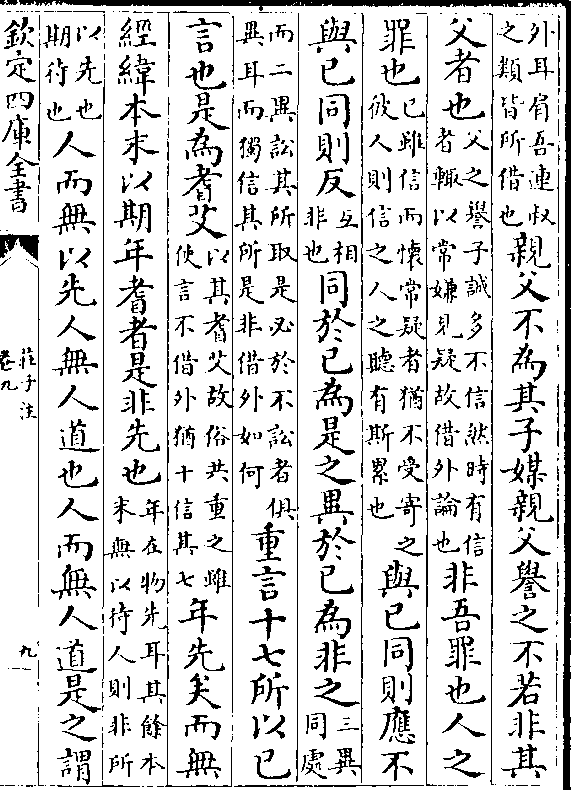 外耳肩吾連叔之類皆所借也親父不為其子媒親父譽之不若非其
父者也父之譽子誠多不信然時有信者輒以常嫌見疑故借外論也非吾罪也人之
罪也已雖信而懷常疑者猶不受寄之彼人則信之人之聽有斯累也與已同則應不
與已同則反互相非也同於已為是之異於已為非之三異同處
而二異訟其所取是必於不訟者俱異耳而獨信其所是非借外如何重言十七所以已
言也是為耆艾以其耆艾故俗共重之雖使言不借外猶十信其七年先矣而無
經緯本末以期年耆者是非先也年在物先耳其餘本末無以待人則非所
以先也期待也人而無以先人無人道也人而無人道是之謂
欽定四庫全書
莊子注
卷九
九